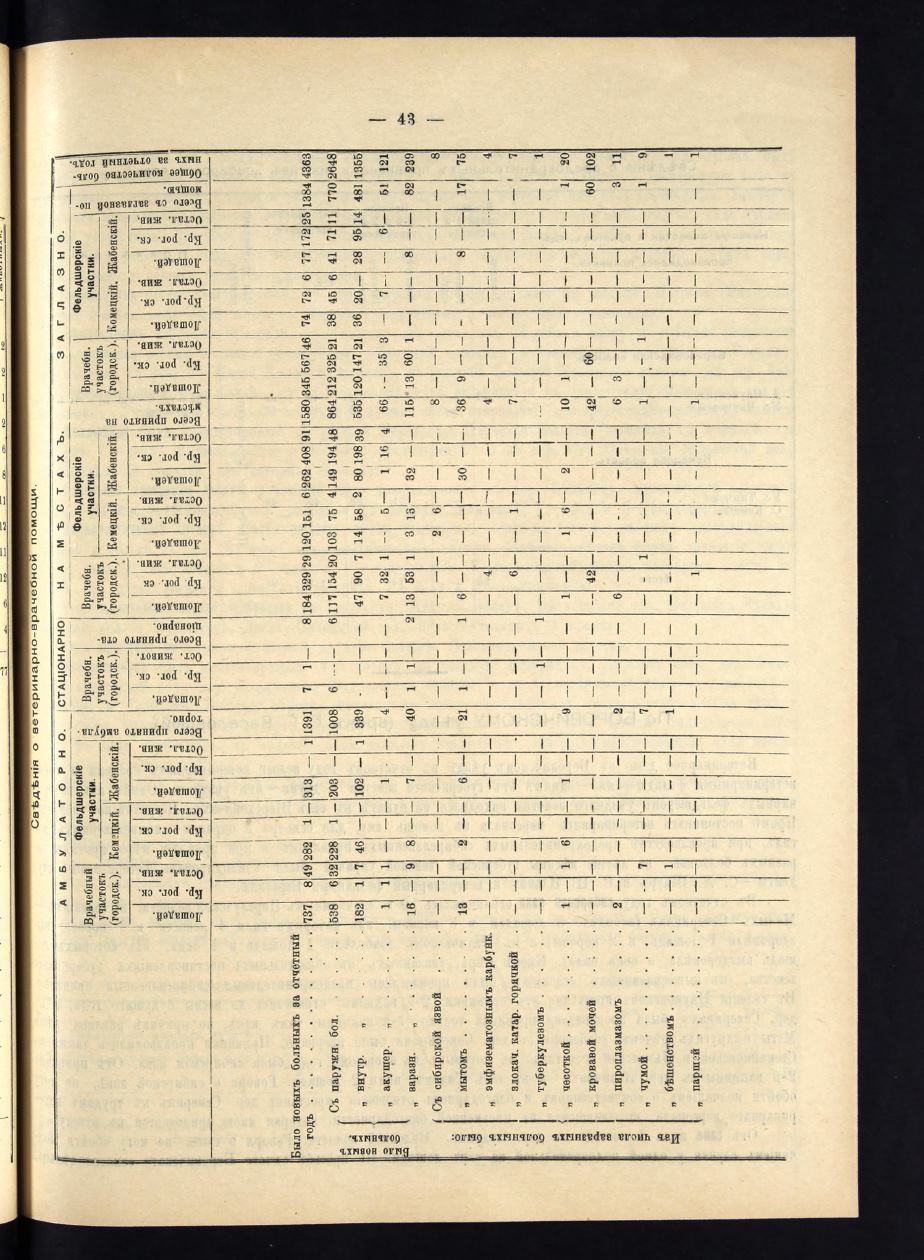 — 43 —
Свѣдѣнія о ветеринарно-врачебной помощи.
АМБУЛАТОРНО.
СТАЦІОНАРНО
НА МѢСТАХЪ.
ЗАГЛАЗНО.
Врачебный участокъ (городск.).
Фельдшерскіе участки.
Кемецкій.
Жабенскій.
Всего принято амбулаторно.
Врачебн. участокъ (городск.).
Всего принято стаціонарно.
Врачебн. участокъ (городск.).
Фельдшерскіе участки.
Кемецкій.
Жабенскій.
Всего принято на мѣстахъ.
Врачебн. участокъ (городск.).
Фельдшерскіе участки.
Комецкій.
Жабенскій.
Всего съ заглазной помощью.
Общее количество больныхъ за отчетный годъ.
Лошадей. Кр. рог. ск. Остал. жив. Лошадей. Кр. рог. ск. Остал. жив. Лошадей. Кр. рог. ск. Остал. жив.
Лошадей. Кр. рог. ск. Ост. живот.
Лошадей. Кр. рог. ск Остал. жив. Лошадей. Кр. рог. ск. Остал. жив. Лошадей. Кр. рог. ск. Остал. жив.
Лошадей. Кр. рог. ск. Остал. жив. Лошадей. Кр. рог. ск. Остал. жив. Лошадей. Кр. рог. ск. Остал. жив.
Было новыхъ больныхъ за отчетный
годъ . . . 737 8 49 282 — 1 313 — 1 1391 7 1 — 8 184 329 29 120 151 6 262 408 91 1580 345 567 46 74 72 6 77 172 25 1384 4363
Было новыхъ больныхъ.
Съ наружн. бол. 538 6 32 228 1 — 203 — — 1008 6 — — 6 117 154 20 103 75 4 149 194 48 864 212 325 21 38 45 6 41 71 11 770 2648
„ внутр. „ 182 1 7 46 — — 102 — 1 339 — — — — 47 90 7 14 58 2 80 198 39 535 120 147 21 36 20 — 28 95 14 481 1355
„ акушер. „ 1 1 1 — — — 1 — — 4 — — — — 7 32 1 — 5 — 1 16 4 66 — 35 3 — 7 — — 6 — 51 121
„ заразн. 16 — 9 8 — — 7 — — 40 1 1 — 2 13 53 1 3 13 — 32 — — 115 13 60 1 — — — 8 — — 82 239
Изъ числа заразныхъ больныхъ было:
Съ сибирской язвой — — — — — — — — — — — — — — — — — 2 6 — — — — 8 — — — — — — — — — — 8
„ мытомъ 13 — — 2 — — 6 — — 21 1 — — 1 6 — — — — — 30 — — 36 9 — — — — — 8 — — 17 75
„ эмфизематознымъ карбунк. — — — — — — — — — — — — — — — 4 — — — — — — — 4 — — — — — — — — — — 4
„ злокач. катар. горячкой — — — — — — — — — — — — — — — 6 — — 1 — — — — 7 — — — — — — — — — — 7
„ туберкулезомъ — — — — — — — — — — — 1 — 1 — — — — — — — — — — — — — — — — — — — — 1
„ чесоткой 1 — 1 6 — — 1 — — 9 — — — — 1 — — 1 6 — 2 — — 10 1 — — — — — — — — 1 20
„ кровавой мочей — — — — — — — — — — — — — — — 42 — — — — — — — 42 — 60 — — — — — — — 60 102
„ пироплазмомъ 2 — — — — — — — — 2 — — — — 6 — — — — — — — — 6 3 — — — — — — — — 3 11
„ чумой — — 7 — — — — — — 7 — — — — — — 1 — — — — — — 1 — — 1 — — — — — — 1 9
„ бѣшенствомъ — — 1 — — — — — — 1 — — — — — — — — — — — — — — — — — — — — — — — — 1
„ паршей — — — — — — — — — — — — — — — 1 — — — — — — — 1 — — — — — — — — — — 1